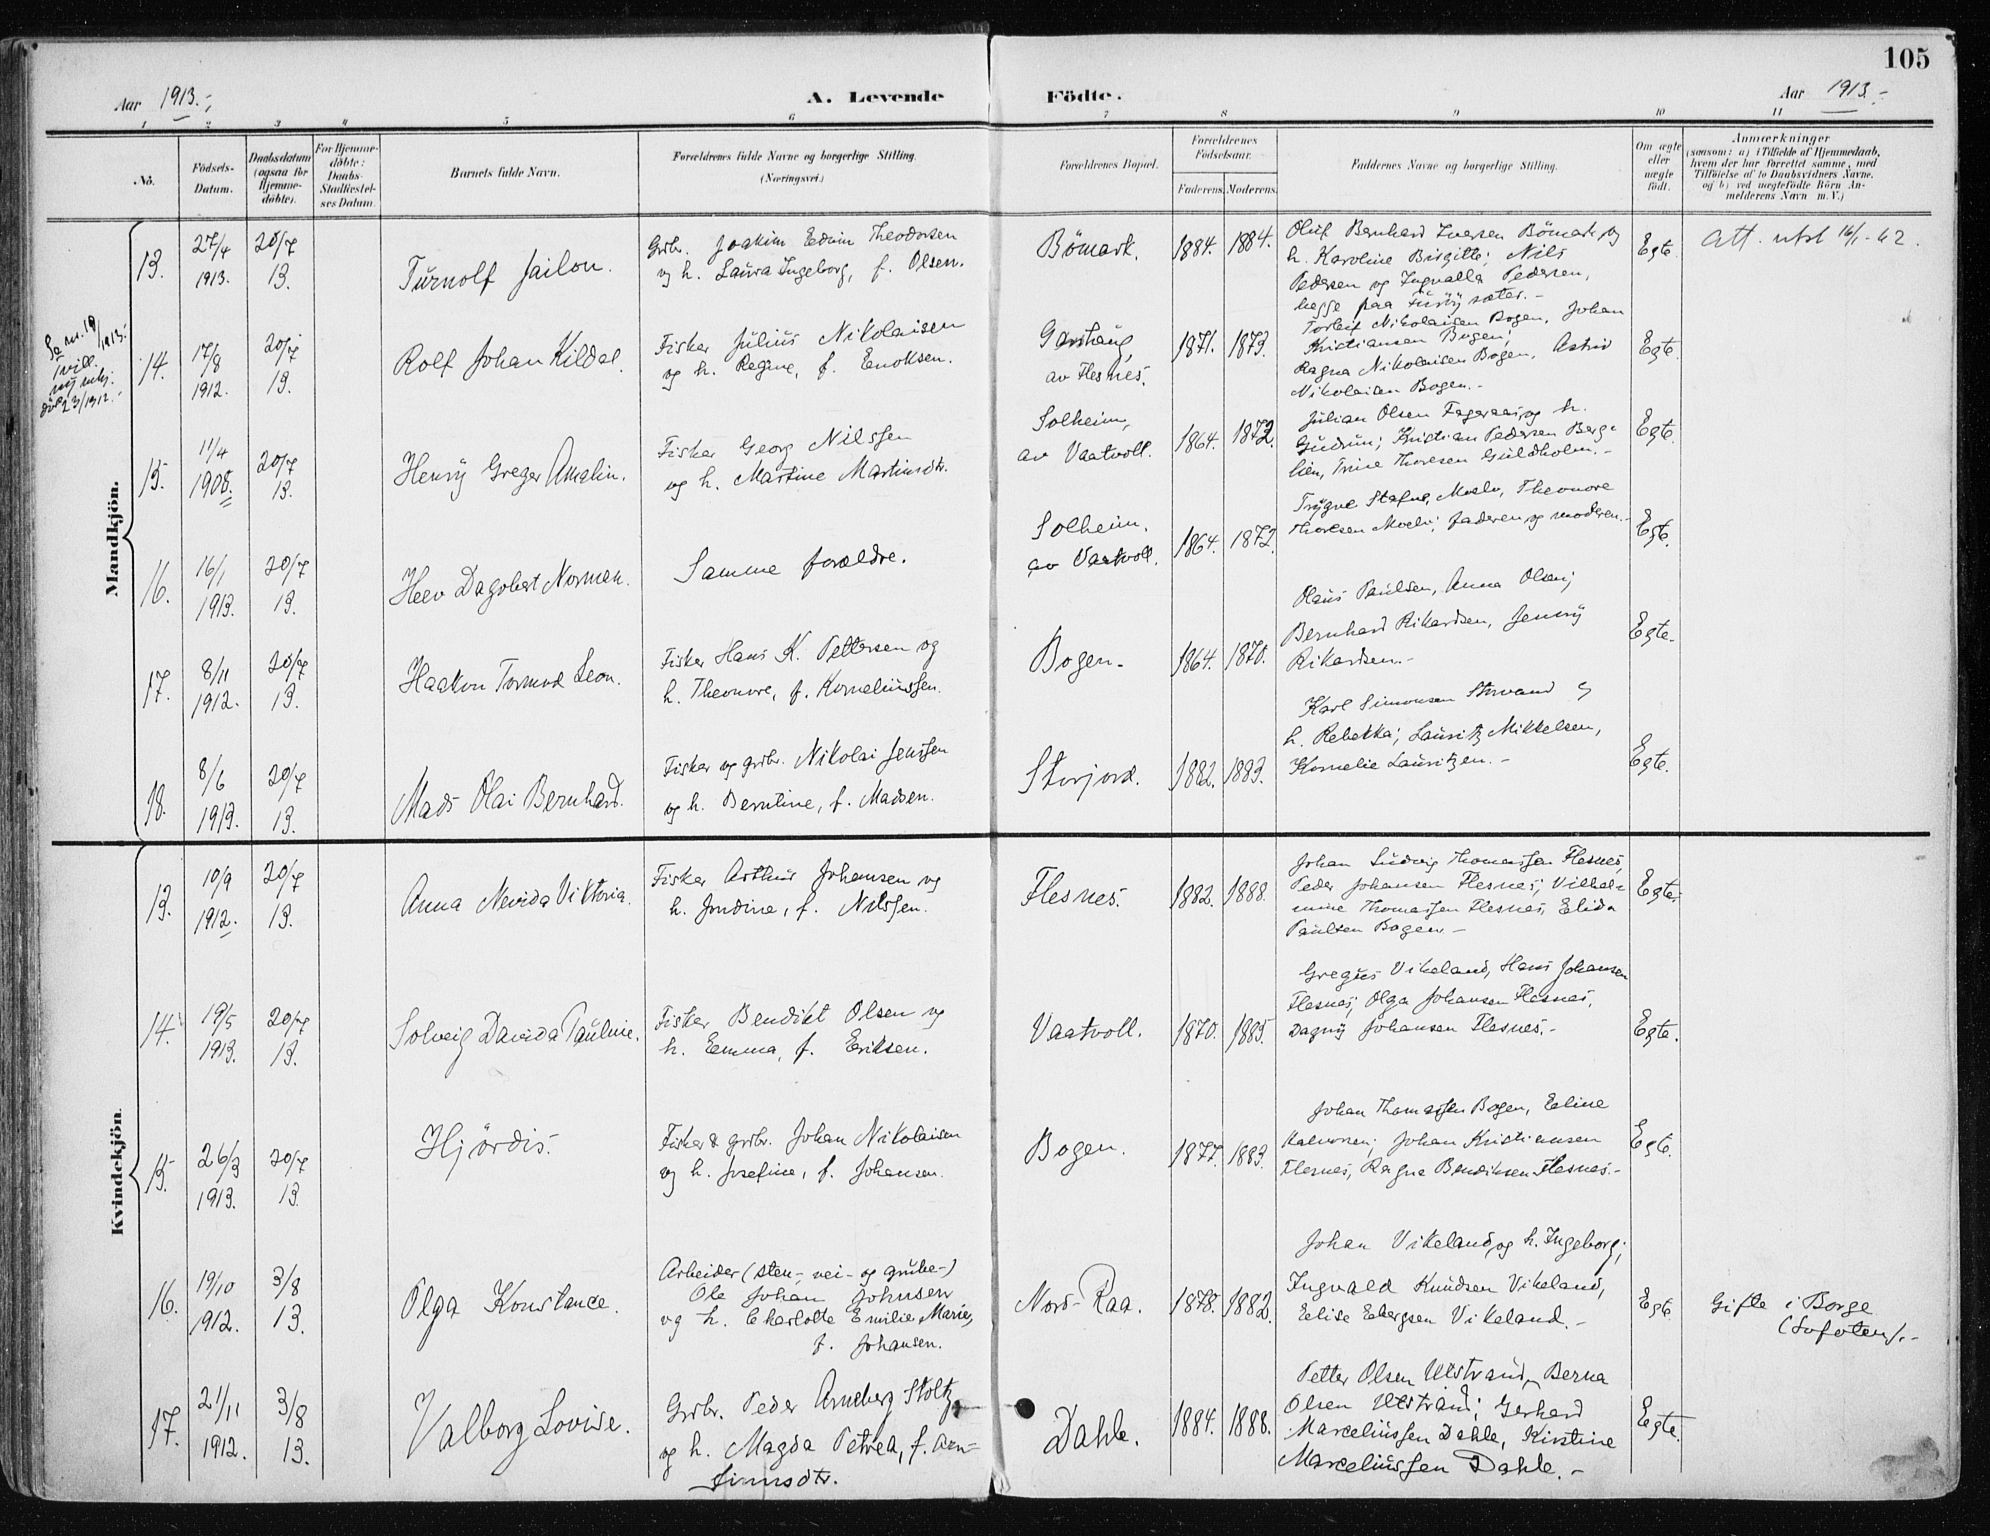 105
Aar 1913.-
A. Levende Födte.
Aar 1913.-
1 2 3 4 5 6 7 8 9 10 11
No.
Födsels-Datum.
Daabsdatum (ogsaa for Hjemme-döbte).
For Hjemme-döbte: Daabs-Stadfæstel-ses Datum.
Barnets fulde Navn.
Forældrenes fulde Navne og borgerlige Stilling. (Næringsvei.)
Forældrenes Bopæl.
Forældrenes Födselsaar.
Faderens. Moderens.
Faddernes Navne og borgerlige Stilling.
Om ægte eller uægte födt.
Anmærkninger
(saasom: a) i Tilfælde af Hjemmedaab,
hvem der har forrettet samme, med
Tilföielse af to Daabsvidners Navne.
og b) ved uægtefödte Börn An-
melderens Navn m. V.)
Mandkjön.
13.
27/4 1913.
20/7 13.
Turnolf Jailon.
Grbr. Joakim Edvin Theodorsen
og h. Laura Ingeborg, f. Olsen.
Bömark.
1884. 1884.
Oluf Bernhard Iversen Bömark og
h. Karoline Birgitte; Nils
Pedersen og Ingvalla Pedersen,
begge paa
Egte.
Att. utst 16/1-62.
14.
17/8 1912.
20/7 13.
Rolf Johan Kildal.
Fisker Julius Nikolaisen
og h. Regine, f. Enoksen.
av Flesnes.
1871. 1873.
Torleif Nikolaisen Bogen, Johan
Kristiansen Bogen;
Ragna Nikolaisen Bogen, Astrid
Nikolaisen Bogen.-
Egte.
15.
11/4 1908.
20/7 13.
Henry Greger Amalin.
Fisker Georg Nilssen
og h. Martine Martinsdtr.
Solheim,
av Vaatvoll.
1864. 1872.
Julian Olsen Fageraas og h.
Gudrun; Kristian Pedersen Berg-
lien, Trine Thoresen Guldholm.-
Egte.
16.
16/1 1913.
20/7 13.
Dagobert Norman.
Samme forældre.
Solheim.
av Vaatvoll.
1864. 1872.
Trygve Stefne, Moelv, Theonore
Thoresen Moelv; faderen og moderen.-
Egte.
17.
8/11 1912.
20/7 13.
Haakon Tormod Leon.
Fisker Hans K. Pettersen og
h. Theonore, f. Korneliussen.
Bogen.
1864. 1870.
Olaus Paulsen, Anna Olsen;
Bernhard Rikardsen, Jenny
Rikardsen.-
Egte.
18.
8/6 1913.
20/7 13.
Mads Olai Bernhard.
Fisker og grbr. Nikolai Jenssen
og h. Berntine, f. Madsen.
Storjord.
1882. 1883.
Karl Simonsen og
h. Rebekka; Lauritz Mikkelsen,
Kornelie Lauritzen.-
Egte.
Kvindekjön.
13.
10/9 1912.
20/7 13.
Anna Nevida Viktoria.
Fisker Arthur Johansen og
h. Jordine, f. Nilssen.
Flesnes.
1882. 1888.
Johan Ludvig Thomassen Flesnes,
Peder Johansen Flesnes; Vilhel-
mine Thomassen Flesnes, Elida
Paulsen Bogen.-
Egte.
14.
19/5 1913.
20/7 13.
Solveig Davida Pauline.
Fisker Bendikt Olsen og
h. Emma, f. Eriksen.
Vaatvoll.
1870. 1885.
Gregus Vikeland, Hans Johansen
Flesnes; Olga Johansen Flesnes,
Dagny Johansen Flesnes.-
Egte.
15.
26/3 1913.
20/7 13.
Hjördis.
Fisker & grbr. Johan Nikolaisen
og h. Josefine, f. Johansen.
Bogen.
1877. 1883.
Johan Thomassen Bogen, Eeline
Johan Kristiansen
Flesnes, Ragna Bendiksen Flesnes.-
Egte.
16.
19/10 1912.
3/8 13.
Olga Konstance.
Arbeider (sten-, vei- og grube-)
Ole Johan Johnsen
og h. Charlotte Emilie Marie,
f. Johansen.
Nord-Raa.
1878. 1882.
Johan Vikeland og h. Ingeborg;
Ingvald Knudsen Vikeland,
Eelise Edergsen Vikeland.-
Egte.
Gifte i Borge
(Lofoten).-
17.
21/11 1912.
3/8 13.
Valborg Lovise.
Grbr. Peder Arneberg Stoltz
og h. Magda Petrea, f. Arn-
finnsdtr.
Dahle.
1884. 1888.
Petter Olsen Utstrand, Berna
Olsen Utstrand; Gerhard
Marceliussen Dahle, Kirstine
Marceliussen Dahle.-
Egte.